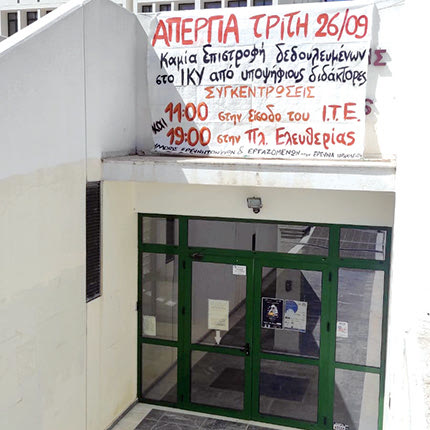 ΑΠΕΡΓΙΑ ΤΡΙΤΗ 26/09
Καμία Επιστροφή δεδουλευμένων
στο ΙΚΥ από υποψήφιους διδάκτορες
ΣΥΓΚΕΝΤΡΩΣΕΙΣ
11:00 στην είσοδο του Ι.Τ.Ε.
και
19:00 στην Πλ. Ελευθερίας
& ΕΡΓΑΖΟΜΕΝΩΝ